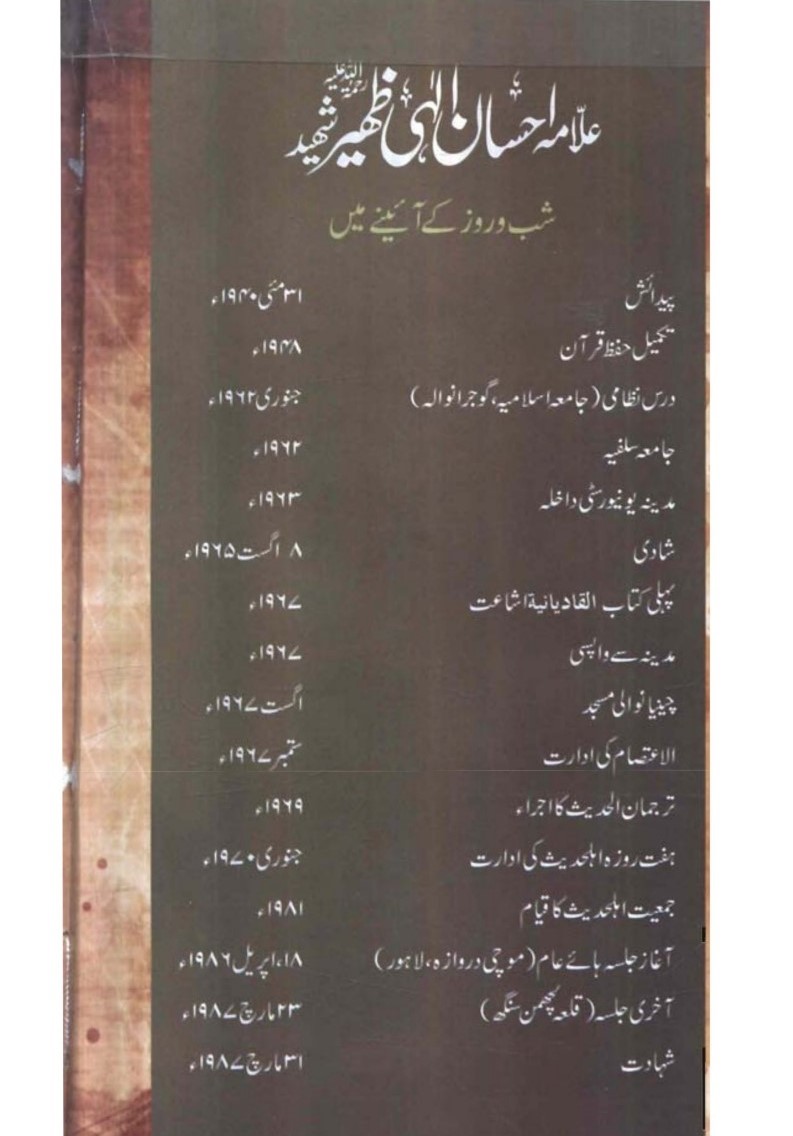 علامہ احسان الٰہی ظہیر شہید رحمۃ اللہ علیہ
شب و روز کے آئینے میں
پیدائش ۳۱ مئی ۱۹۴۰ء
تکمیل حفظ قرآن ۱۹۴۸ء
درس نظامی (جامعہ اسلامیہ، گوجرانوالہ) جنوری ۱۹۶۲ء
جامعہ سلفیہ ۱۹۶۲ء
مدینہ یونیورسٹی داخلہ ۱۹۶۳ء
شادی ۸ اگست ۱۹۶۵ء
پہلی کتاب القادیانیة اشاعت ۱۹۶۷ء
مدینہ سے واپسی ۱۹۶۷ء
چینیانوالی مسجد اگست ۱۹۶۷ء
الاعتصام کی ادارت ستمبر ۱۹۶۷ء
ترجمان الحدیث کا اجراء ۱۹۶۹ء
ہفت روزہ اہلحدیث کی ادارت جنوری ۱۹۷۰ء
جمعیت اہلحدیث کا قیام ۱۹۸۱ء
آغاز جلسہ ہائے عام (موچی دروازہ، لاہور) ۱۸، اپریل ۱۹۸۶ء
آخری جلسہ (قلعہ لچھمن سنگھ) ۲۳ مارچ ۱۹۸۷ء
شہادت ۳۱ مارچ ۱۹۸۷ء